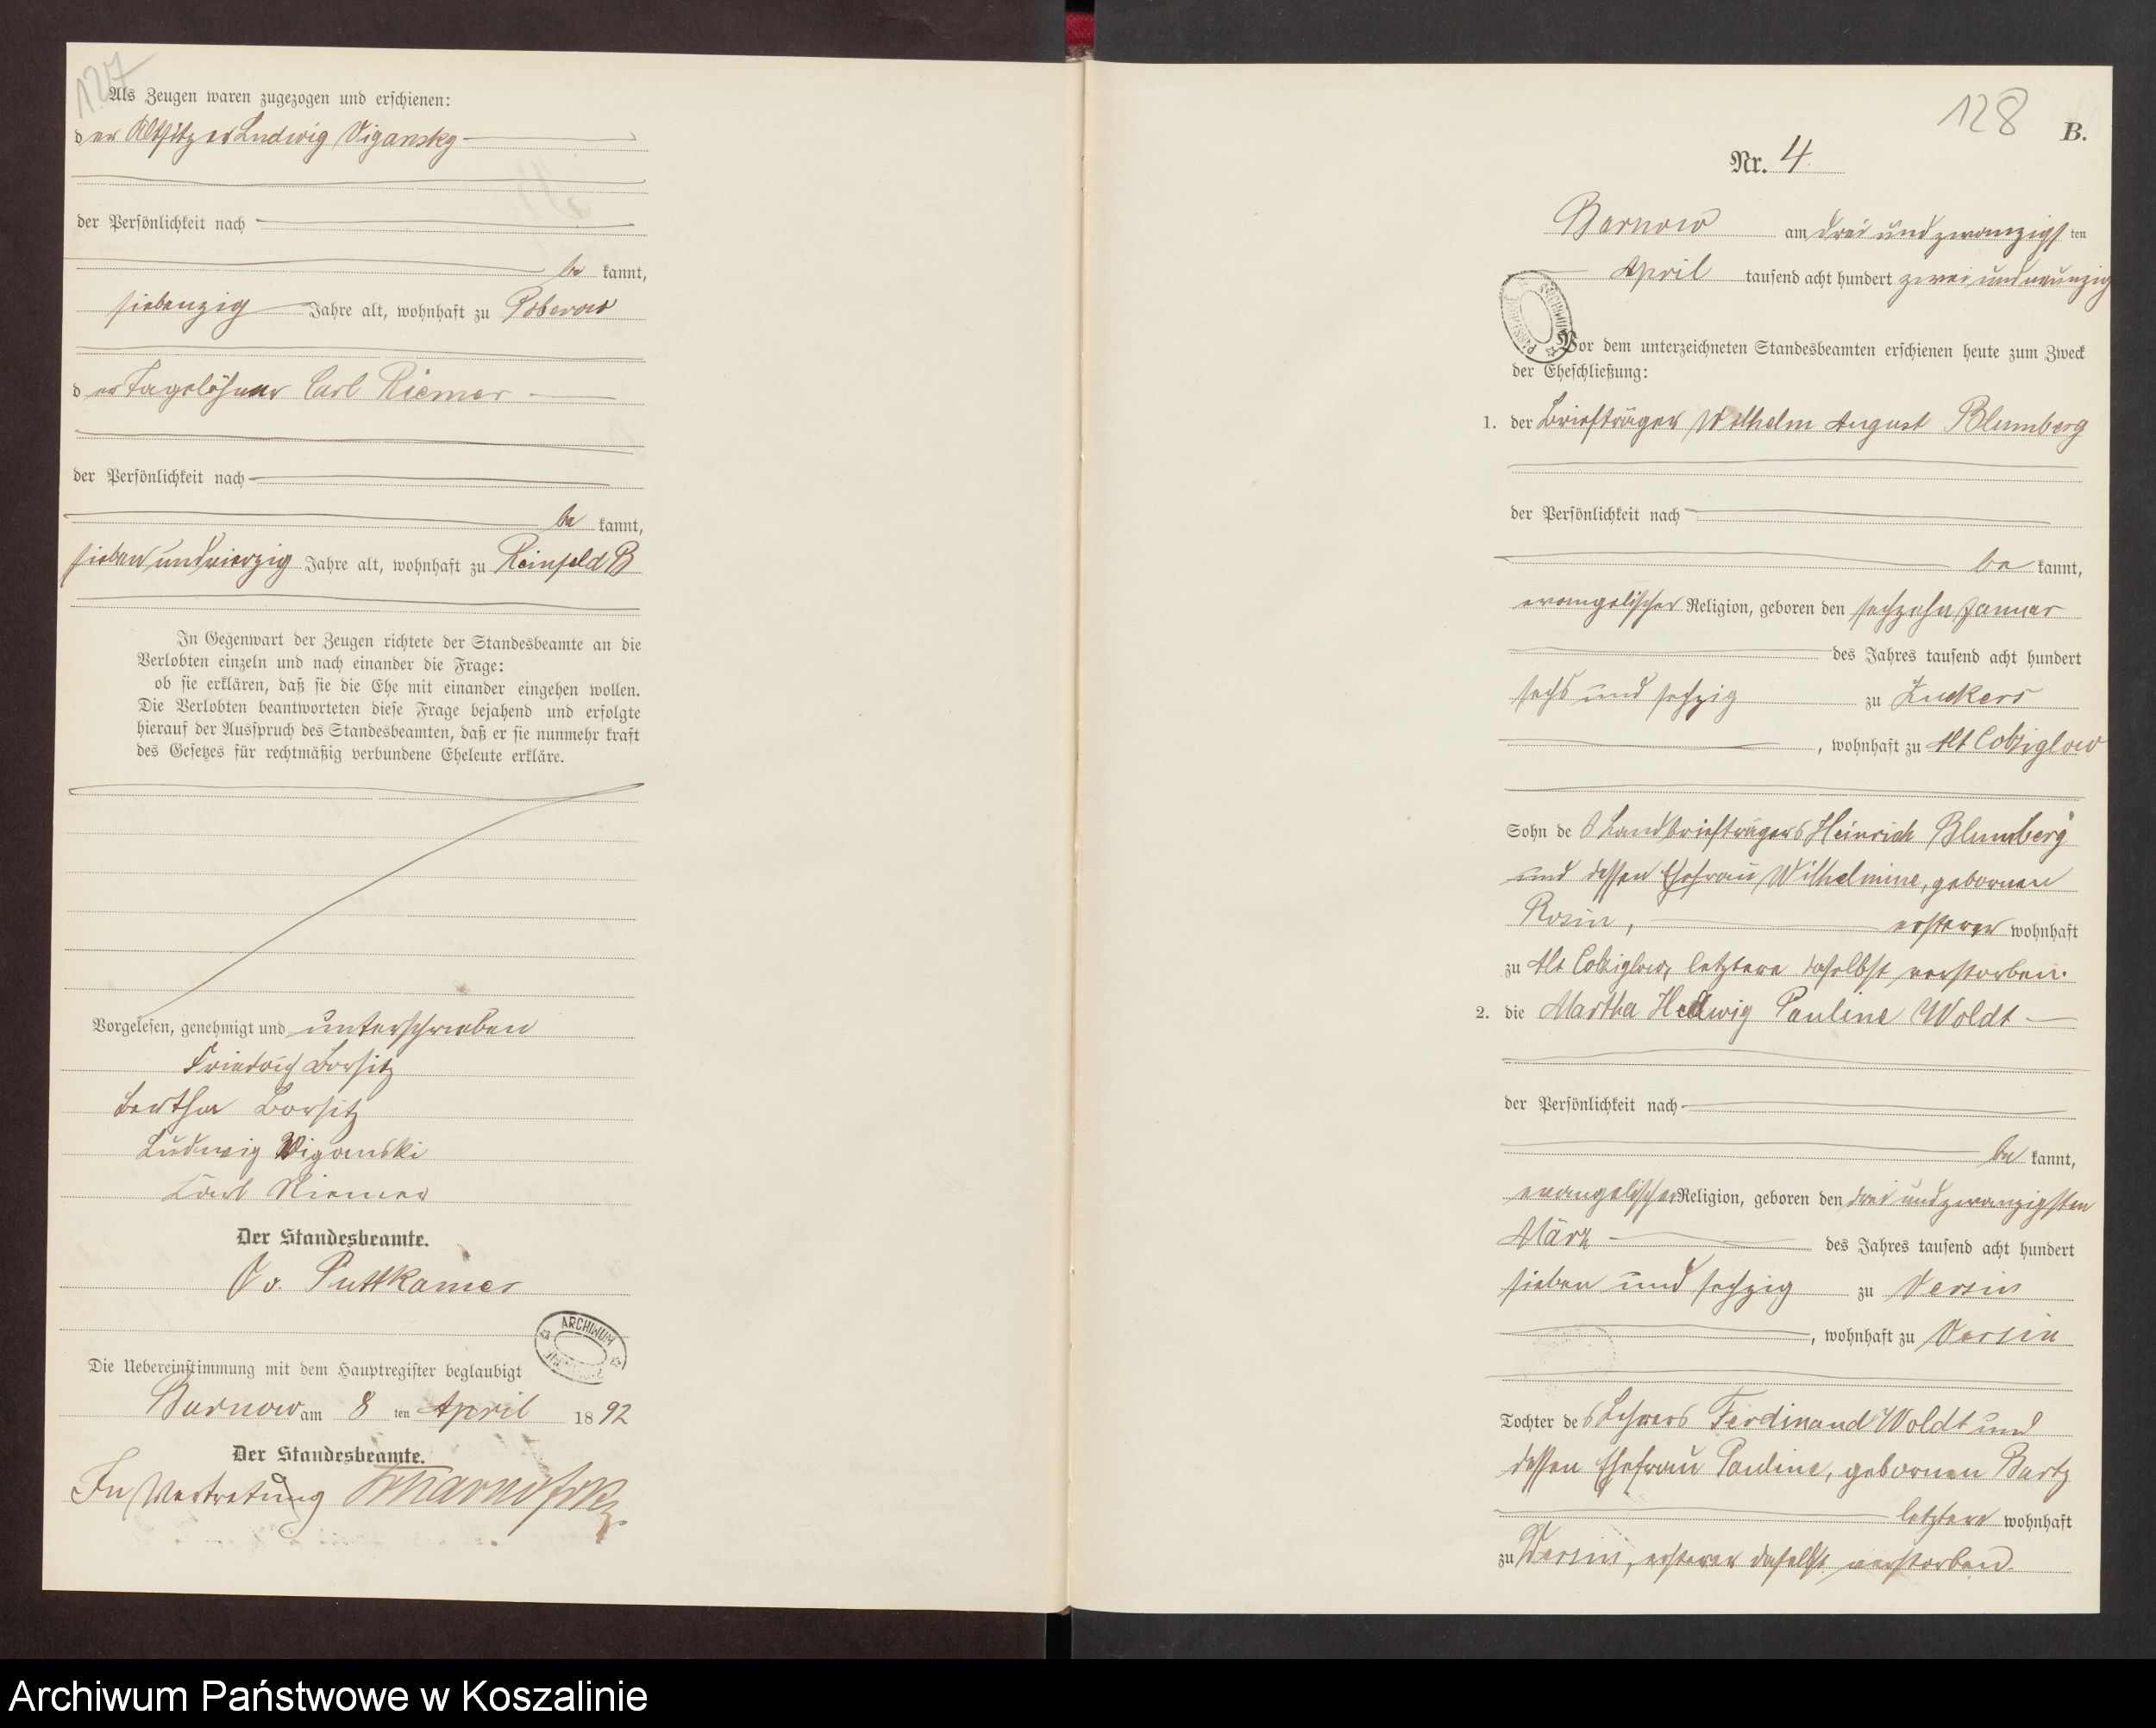 127
Als Zeugen waren zugezogen und erschienen:
der Altsitzer Ludwig Vigansky
der Persönlichkeit nach
be kannt,
siebenzig Jahre alt, wohnhaft zu Poberow
der Tagelöhner Carl Riemer
der Persönlichkeit nach
be kannt,
sieben und vierzig Jahre alt, wohnhaft zu Reinfeld B
In Gegenwart der Zeugen richtete der Standesbeamte an die
Verlobten einzeln und nach einander die Frage:
ob sie erklären, daß sie die Ehe mit einander eingehen wollen.
Die Verlobten beantworteten diese Frage bejahend und erfolgte
hierauf der Ausspruch des Standesbeamten, daß er sie nunmehr kraft
des Gesetzes für rechtmäßig verbundene Eheleute erkläre.
Vorgelesen, genehmigt und unterschrieben
Friedrich Borsitz
Bertha Borsitz
Ludwig Wiganski
Karl Riemer
Der Standesbeamte.
v. Puttkamer
ARCHIWUM
Die Uebereinstimmung mit dem Hauptregister beglaubigt
Barnow am 8 ten April 1892
Der Standesbeamte.
In Vertretung
128
B.
Nr. 4.
Barnow am drei und zwanzigsten
April tausend acht hundert zwei und neunzig
ARCHIWUM
Vor dem unterzeichneten Standesbeamten erschienen heute zum Zweck
der Eheschließung:
1. der Briefträger Wilhelm August Blumberg
der Persönlichkeit nach
be kannt,
evangelischer Religion, geboren den sechzehn Januar
des Jahres tausend acht hundert
sechs und sechzig zu Zuckers
, wohnhaft zu Alt Colziglow
Sohn des Landbriefträgers Heinrich Blumberg
und dessen Ehefrau Wilhelmine, gebornen
Rosin, ersterer wohnhaft
zu Alt Colziglow, letztere daselbst verstorben.
2. die Martha Hedwig Pauline Woldt
der Persönlichkeit nach
be kannt,
evangelischer Religion, geboren den drei und zwanzigsten
März des Jahres tausend acht hundert
sieben und sechzig zu Versin
, wohnhaft zu Versin
Tochter des Lehrers Ferdinand Woldt und
dessen Ehefrau Pauline, gebornen Bartz
letztere wohnhaft
zu Versin, ersterer daselbst verstorben.
Archiwum Państwowe w Koszalinie